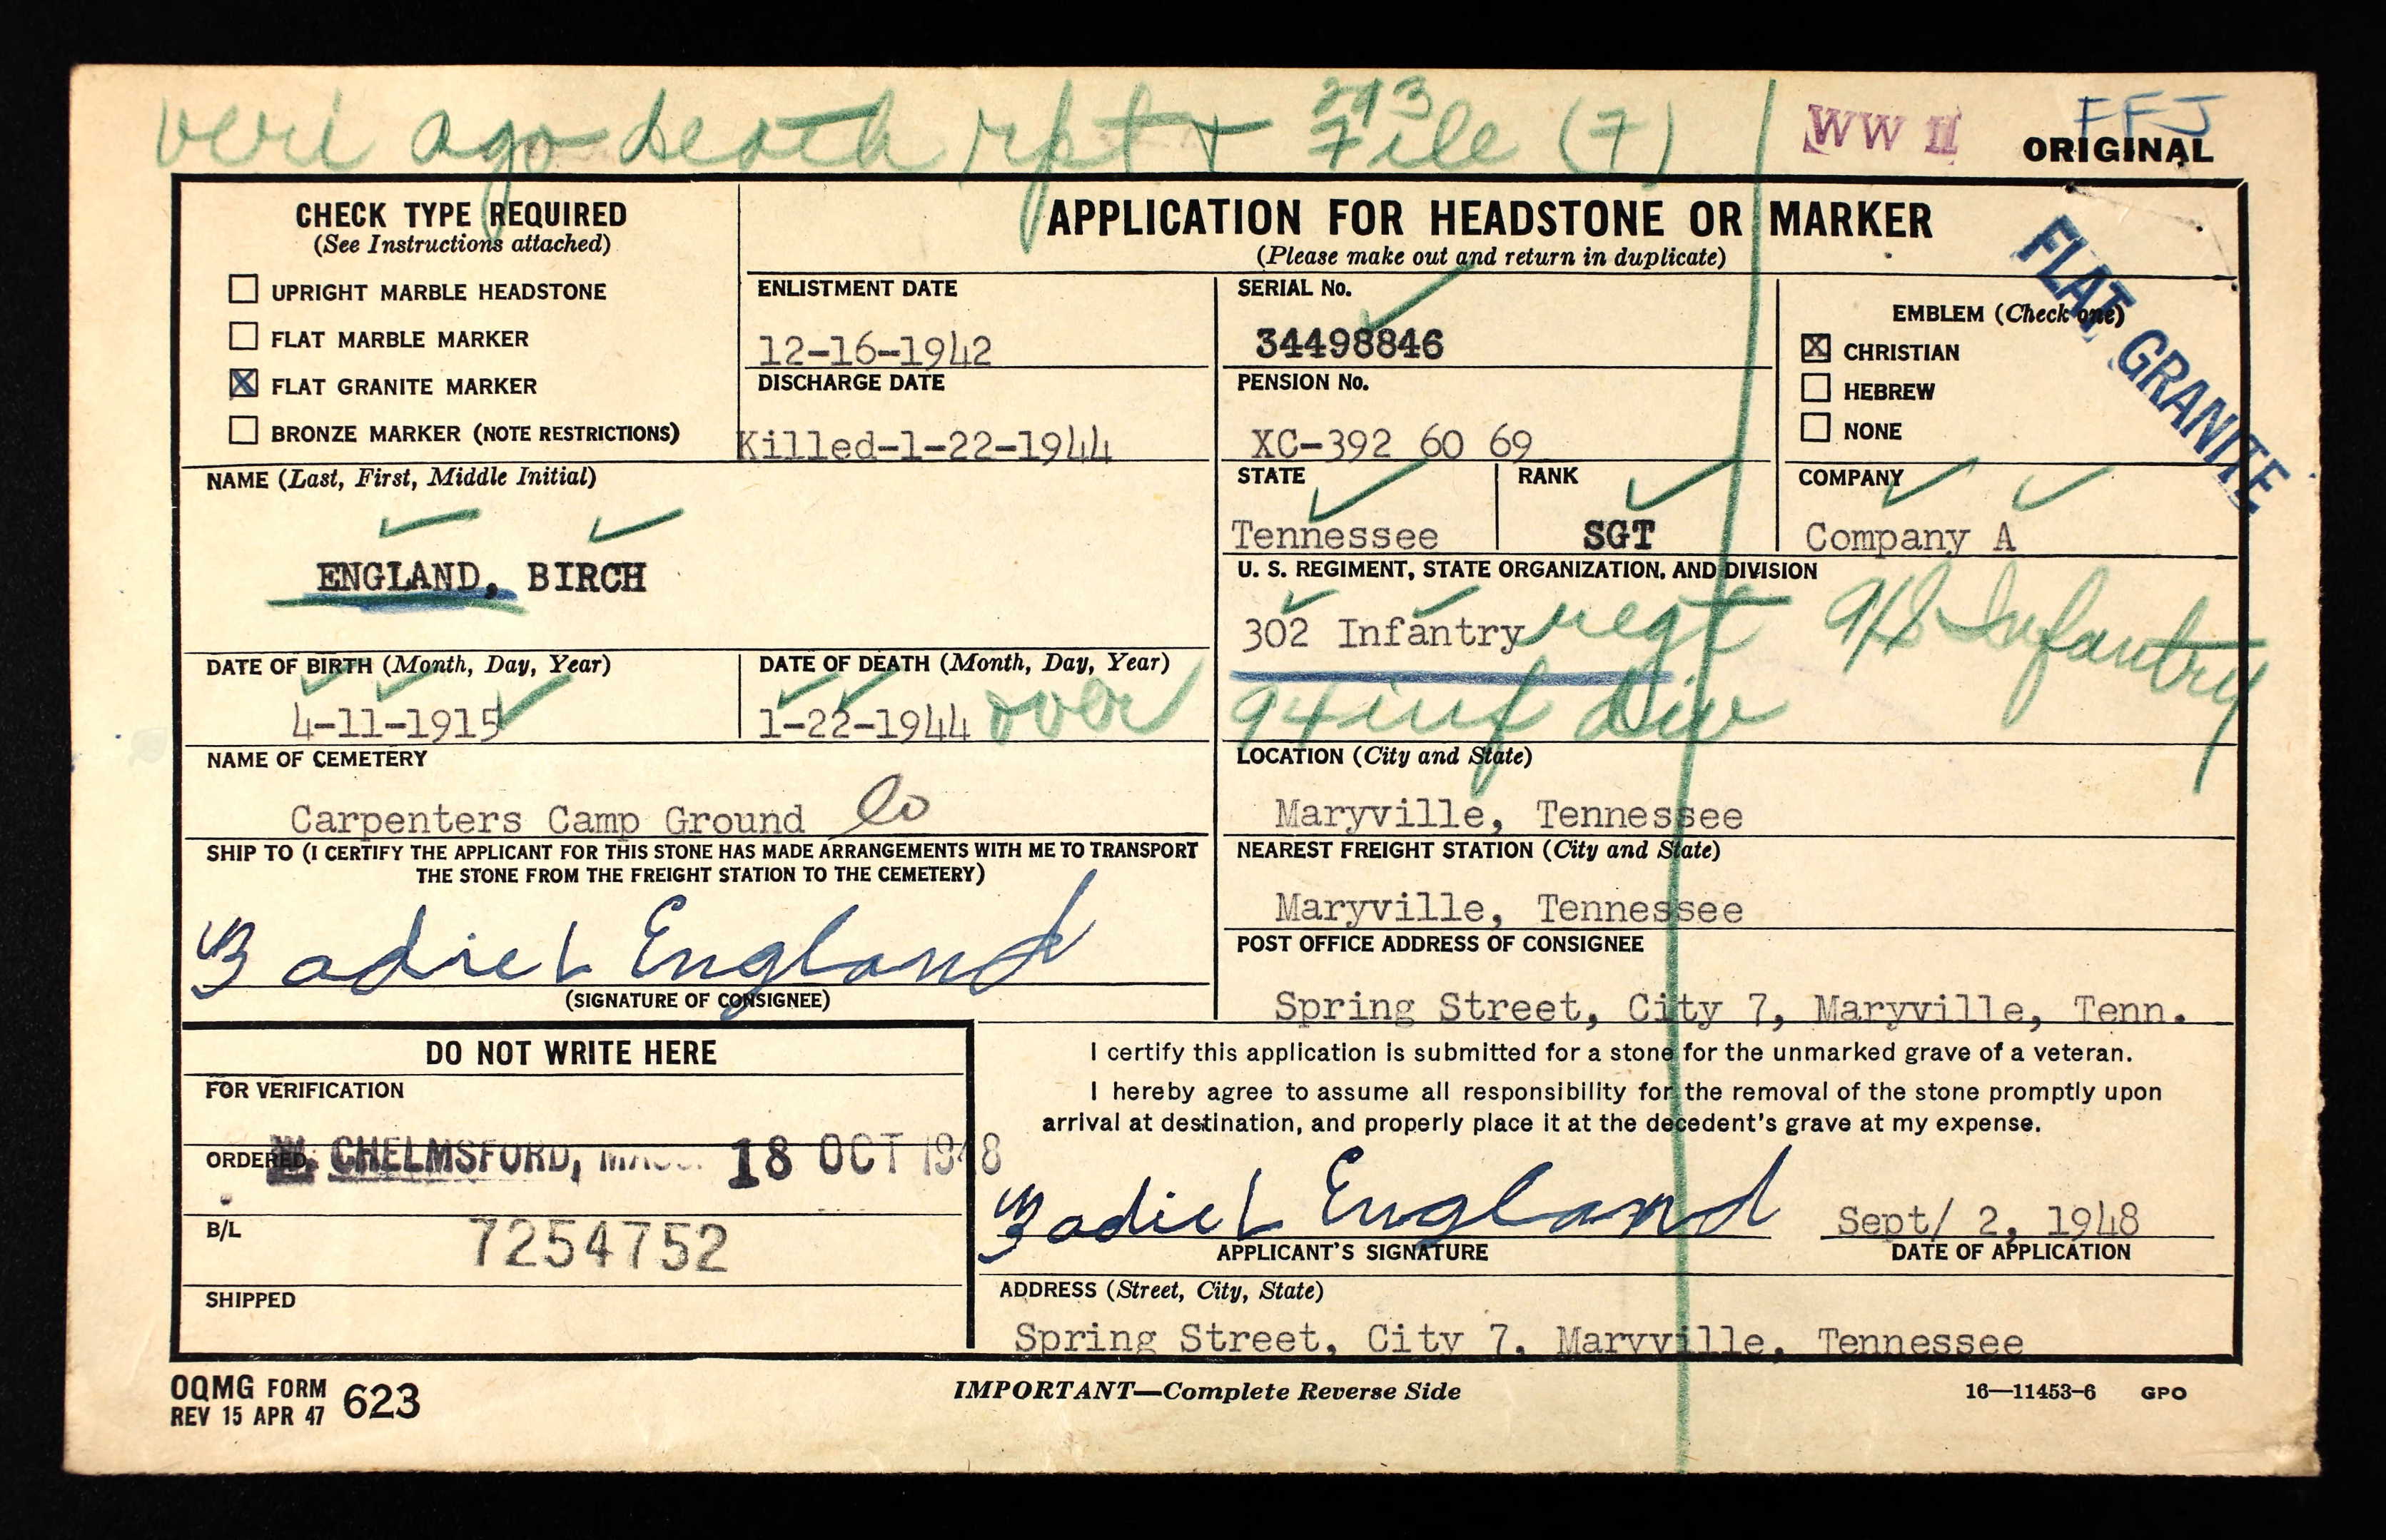 veri ago death rpt + 293 File (7)
WW II
FFJ
ORIGINAL
CHECK TYPE REQUIRED
(See Instructions attached)
UPRIGHT MARBLE HEADSTONE
FLAT MARBLE MARKER
X FLAT GRANITE MARKER
BRONZE MARKER (NOTE RESTRICTIONS)
APPLICATION FOR HEADSTONE OR MARKER
(Please make out and return in duplicate)
ENLISTMENT DATE
12-16-1942
DISCHARGE DATE
Killed-1-22-1944
SERIAL No.
34498846
PENSION No.
XC-392 60 69
EMBLEM (Check one)
X CHRISTIAN
HEBREW
NONE
FLAT GRANITE
NAME (Last, First, Middle Initial)
ENGLAND, BIRCH
STATE
Tennessee
RANK
SGT
COMPANY
Company A
U. S. REGIMENT, STATE ORGANIZATION, AND DIVISION
302 Infantry regt Infantry
94 inf div
DATE OF BIRTH (Month, Day, Year)
4-11-1915
DATE OF DEATH (Month, Day, Year)
1-22-1944 over
NAME OF CEMETERY
Carpenters Camp Ground Co
LOCATION (City and State)
Maryville, Tennessee
SHIP TO (I CERTIFY THE APPLICANT FOR THIS STONE HAS MADE ARRANGEMENTS WITH ME TO TRANSPORT
THE STONE FROM THE FREIGHT STATION TO THE CEMETERY)
Zadie L England
(SIGNATURE OF CONSIGNEE)
NEAREST FREIGHT STATION (City and State)
Maryville, Tennessee
POST OFFICE ADDRESS OF CONSIGNEE
Spring Street, City 7, Maryville, Tenn.
DO NOT WRITE HERE
FOR VERIFICATION
ORDERED
CHELMSFORD, MASS. 18 OCT 1948
B/L
7254752
SHIPPED
I certify this application is submitted for a stone for the unmarked grave of a veteran.
I hereby agree to assume all responsibility for the removal of the stone promptly upon
arrival at destination, and properly place it at the decedent's grave at my expense.
Zadie L England
APPLICANT'S SIGNATURE
Sept/ 2, 1948
DATE OF APPLICATION
ADDRESS (Street, City, State)
Spring Street, City 7, Maryville, Tennessee
OQMG FORM 623
REV 15 APR 47
IMPORTANT—Complete Reverse Side
16—11453-6 GPO